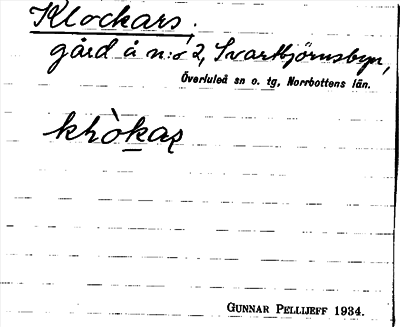 Klockars,
gård å n:o 2, Svartbjörnsbyn,
Överluleå sn o. tg, Norrbottens län.
GUNNAR PELLIJEFF 1934.